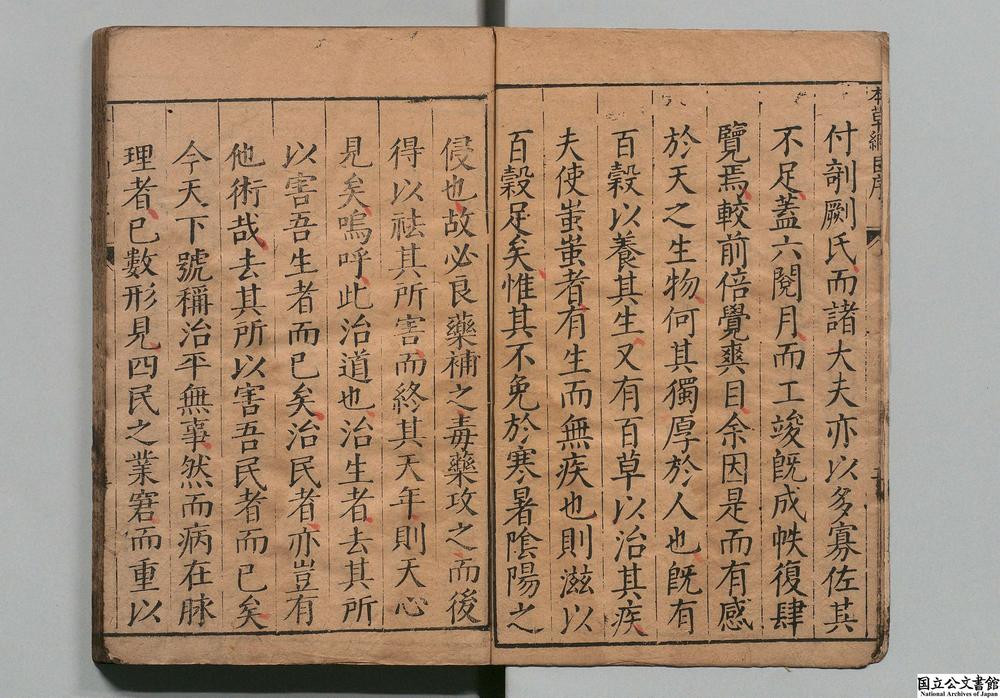 本草綱目序
付剞劂氏而諸大夫亦以多寡佐其
不足蓋六閱月而工竣旣成帙復肆
覽焉較前倍覺爽目余因是而有感
於天之生物何其獨厚於人也旣有
百穀以養其生又有百草以治其疾
夫使蚩蚩者有生而無疾也則滋以
百穀足矣惟其不免於寒暑陰陽之
侵也故必良藥補之毒藥攻之而後
得以祛其所害而終其天年則天心
見矣嗚呼此治道也治生者去其所
以害吾生者而已矣治民者亦豈有
他術哉去其所以害吾民者而已矣
今天下號稱治平無事然而病在脉
理者已數形見四民之業窘而重以
国立公文書館
National Archives of Japan